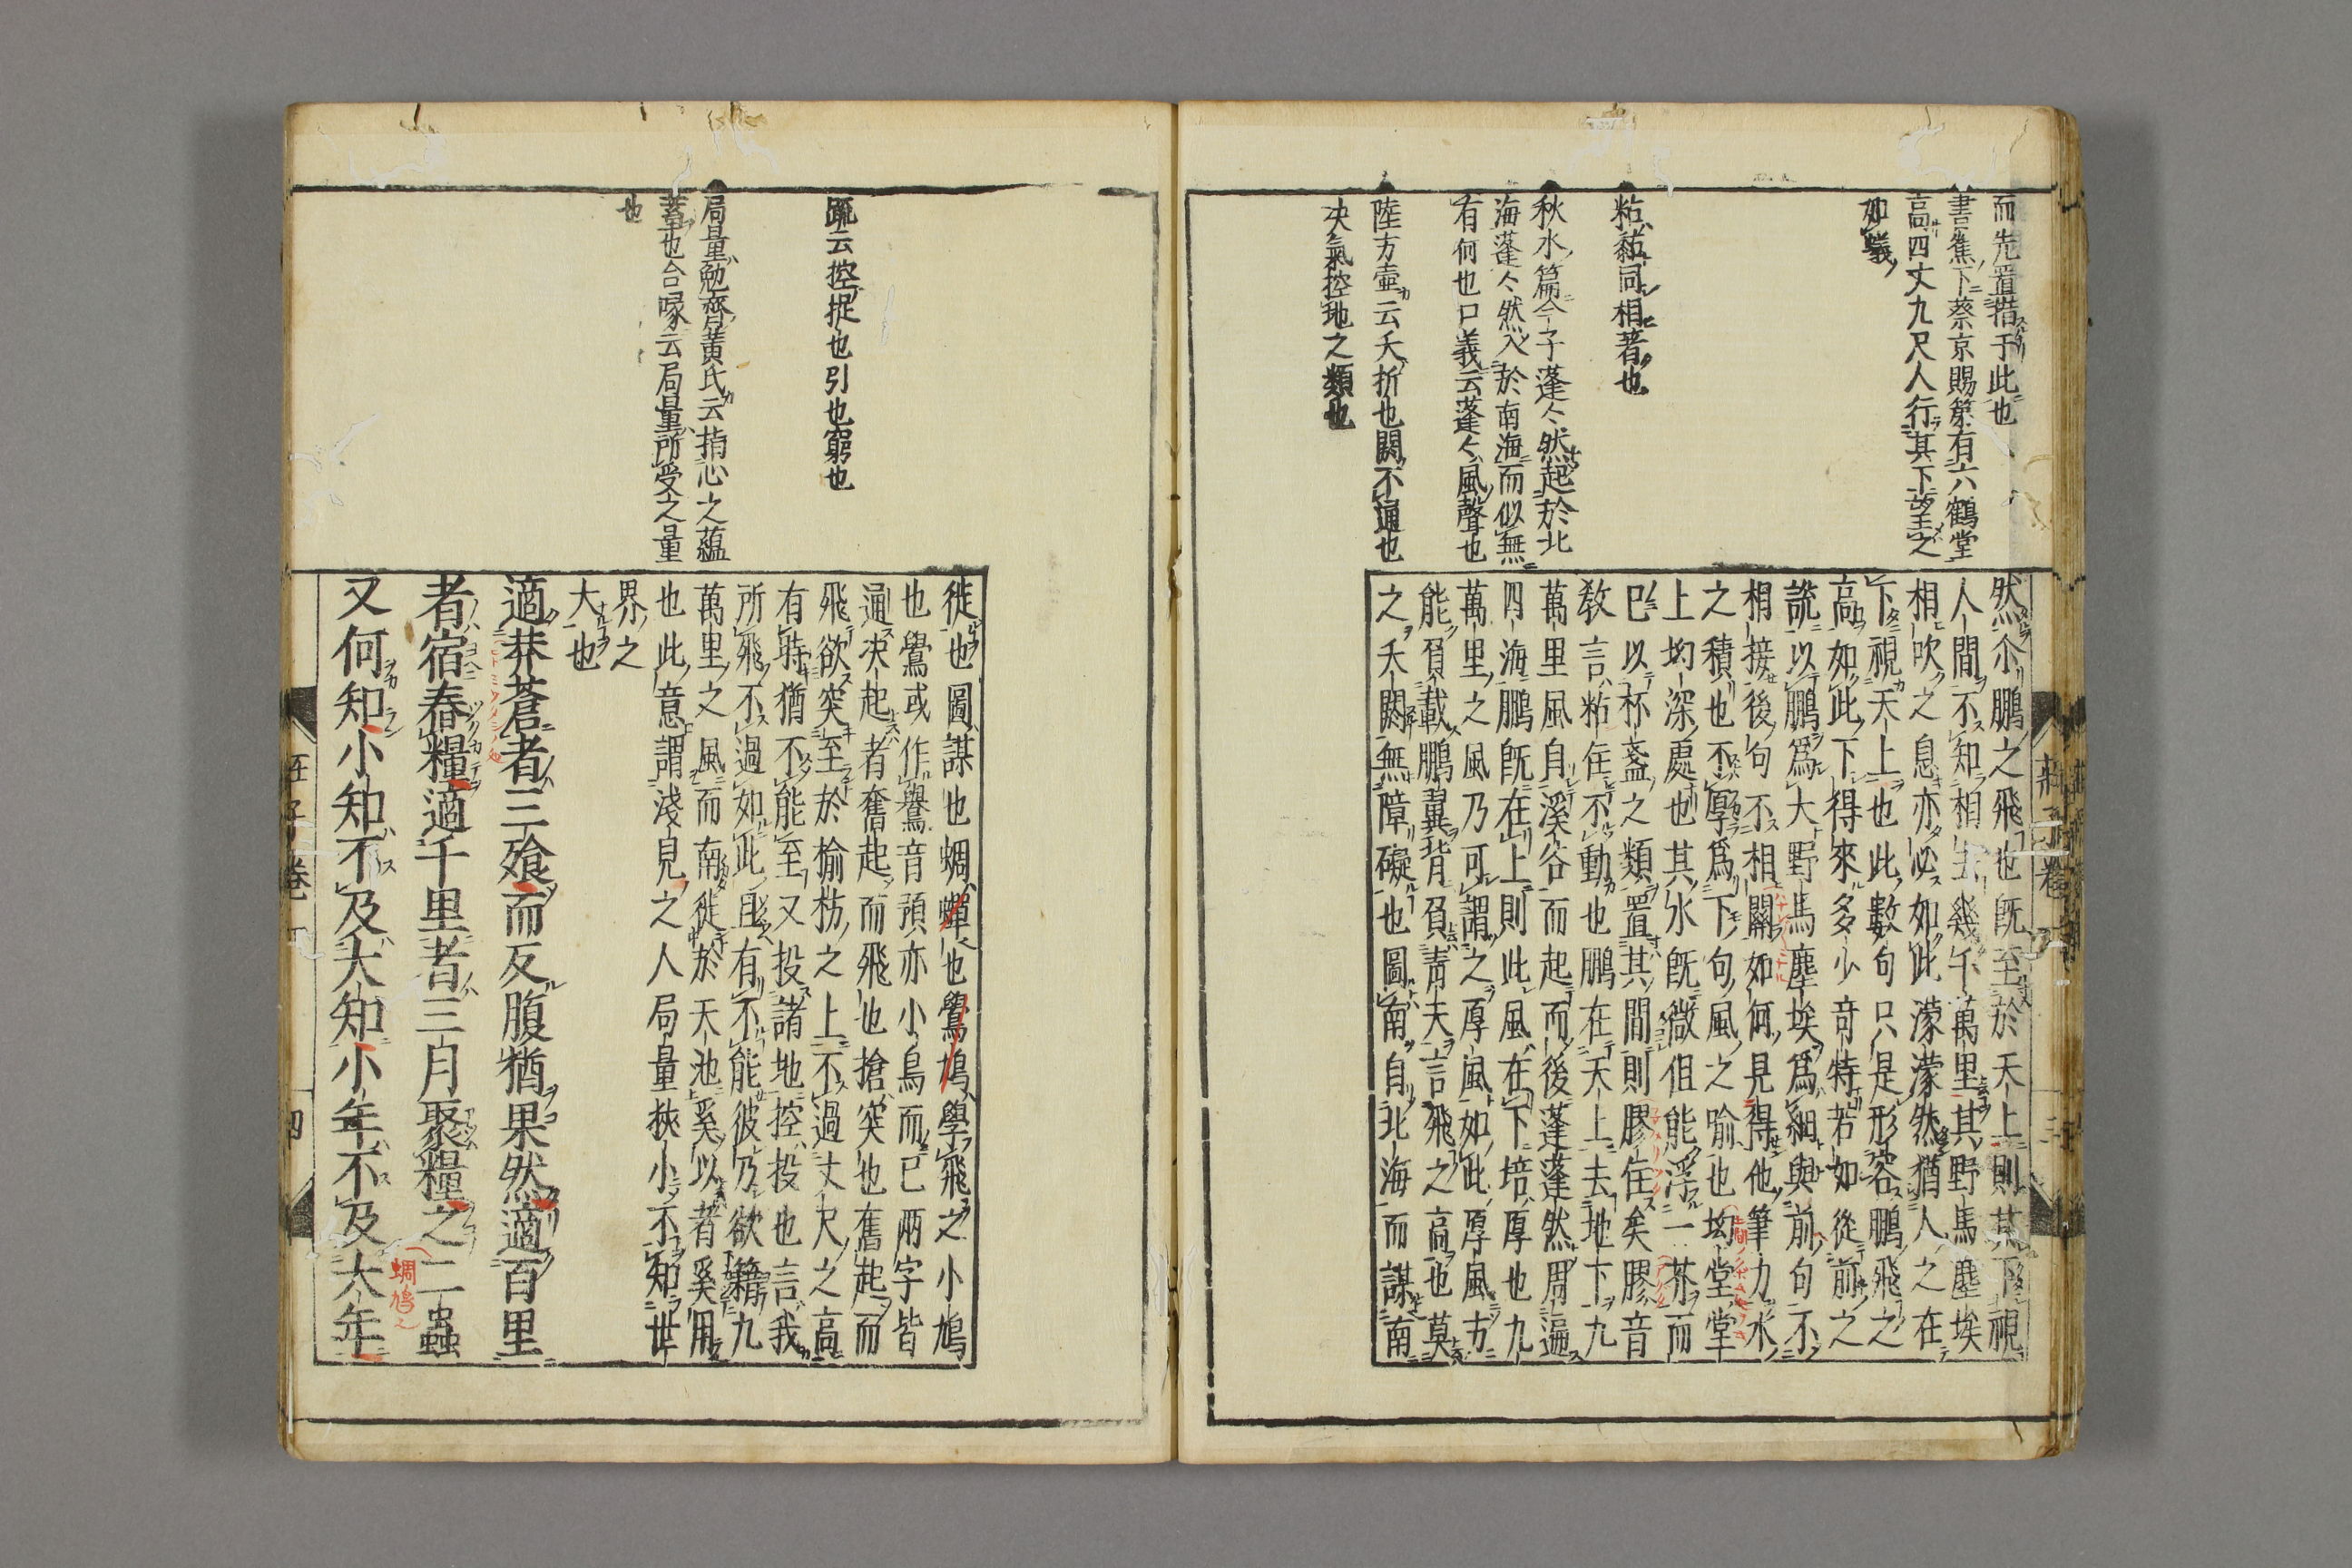 而先置措于此也
書蕉下蔡京賜第有六鶴堂
高四丈九尺人行其下望之
如蟻
粘黏同相著也
秋水篇今子蓬〻然起於北
海蓬〻然入於南海而似無
有何也口義云蓬〻風聲也
陸方壷云夭折也閼不通也
决氣控地之類也
然尒鵬之飛也既至於天上則其下視
人間不知相去幾千萬里其野馬塵埃
相吹之息亦必如此濛濛然猶人之在
下視天上也此數句只是形容鵬飛之
高如此下得來多少奇特若如從前之
說以鵬爲大野馬塵埃爲細與前句不
相接後句不相關如何見得他筆力水
之積也不厚爲下句風之喻也坳堂堂
上坳深處也其水既微但能浮一芥而
已以杯盞之類置其間則膠住矣膠音
教言粘住不動也鵬在天上去地下九
萬里風自溪谷而起而後蓬蓬然周遍
四海鵬既在上則此風在下培厚也九
萬里之風乃可謂之厚風如此厚風方
能負載鵬翼背負青天言飛之高也莫
之夭閼無障礙也圖南自北海而謀南
疏云控捉也引也窮也
局量勉齋黃氏云指心之蘊
蓄也合喙云局量所受之量
也
徙也圖謀也蜩蟬也鷽鳩學飛之小鳩
也鷽或作鸒音預亦小鳥而已兩字皆
通决起者奮起而飛也搶突也奮起而
飛欲突至於榆枋之上不過丈尺之高
有時猶不能至又投諸地控投也言我
所飛不過如此且有不能彼乃欲藉九
萬里之風而南徙於天池奚以者奚用
也此意謂淺見之人局量狹小不知世
界之
大也
適莽蒼者三飡而反腹猶果然適百里
者宿舂糧適千里者三月聚糧之二蟲
蜩鳩
又何知小知不及大知小年不及大年
莊子卷一 四